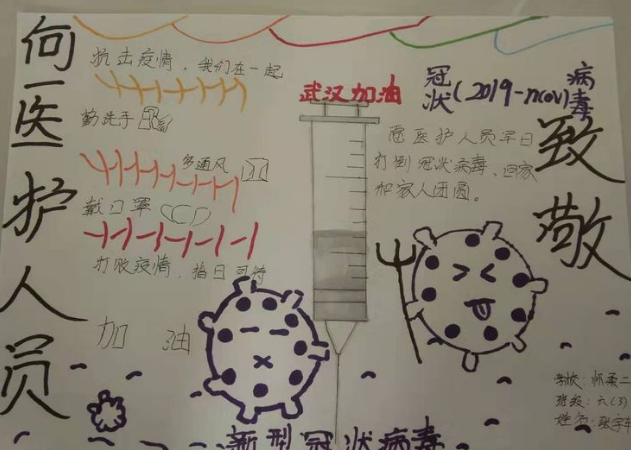 向医护人员
致敬
抗击疫情，我们在一起
勤洗手
多通风
戴口罩
打败疫情，指日可待
加油
武汉加油
冠状(2019-nCoV)病毒
愿医护人员早日
打倒冠状病毒，回家
和家人团圆。
新型冠状病毒
学校：怀柔二
班级：六(3)
姓名：张宇